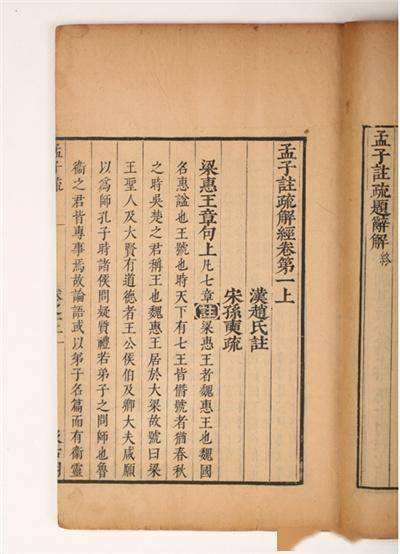 孟子註疏題辭解終
孟子註疏解經卷第一上
漢趙氏註
宋孫奭疏
梁惠王章句上凡七章註梁惠王者魏惠王也魏國
名惠諡也王號也時天下有七王皆僭號者猶春秋
之時吳楚之君稱王也魏惠王居於大梁故號曰梁
王聖人及大賢有道德者王公侯伯及卿大夫咸願
以為師孔子時諸侯問疑質禮若弟子之問師也魯
衞之君皆專事焉故論語或以弟子名篇而有衞靈
孟子疏